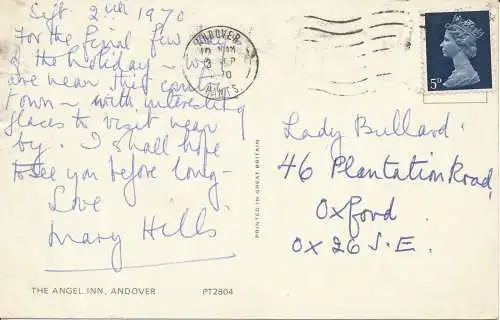 Sept. 2nd 1970
For the final few days
of the holiday – we
are near this country
town – with interesting
places to visit near
by. I shall hope
to see you before long –
Love
Mary Hills
THE ANGEL INN, ANDOVER PT2804
PRINTED IN GREAT BRITAIN
ANDOVER
12
AM
3 SEP
1970
HANTS.
5D
Lady Bullard
46 Plantation Road,
Oxford.
OX2 6 J.E.